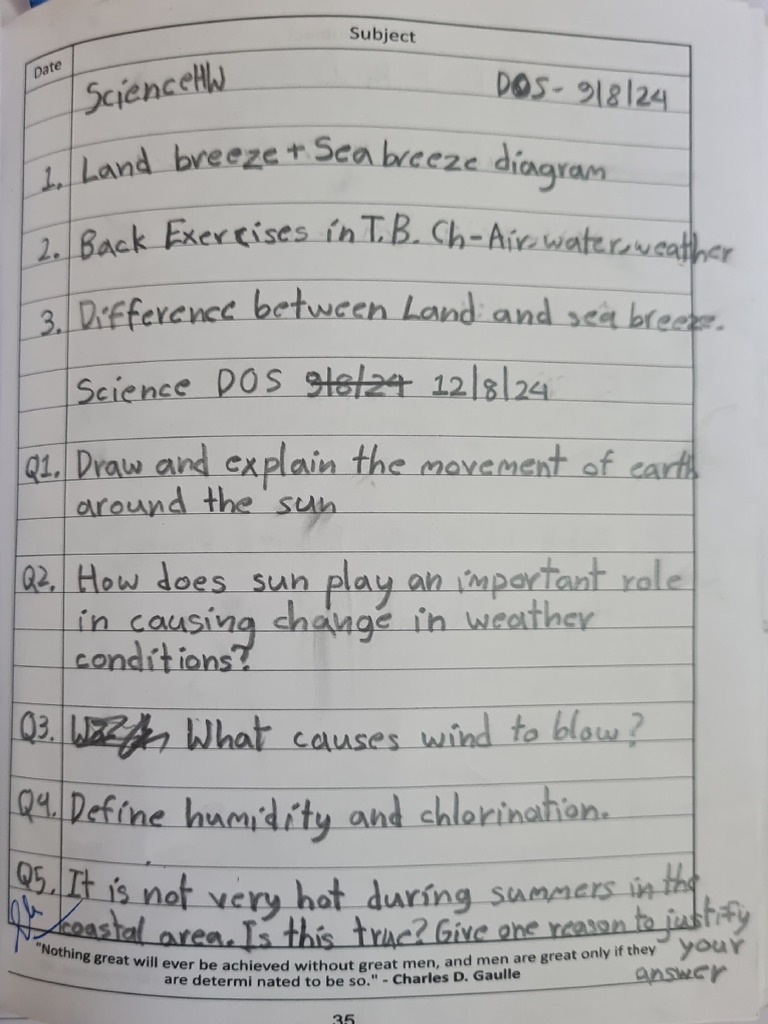 Subject
Date
ScienceHW DOS- 9/8/24
1. Land breeze + Sea breeze diagram
2. Back Exercises in T.B. Ch-Air, water, weather
3. Difference between Land and sea breeze.
Science DOS 9/8/24 12/8/24
Q1. Draw and explain the movement of earth
around the sun
Q2. How does sun play an important role
in causing change in weather
conditions?
Q3. What causes wind to blow?
Q4. Define humidity and chlorination.
Q5. It is not very hot during summers in the
coastal area. Is this true? Give one reason to justify
your
answer
"Nothing great will ever be achieved without great men, and men are great only if they
are determi nated to be so." - Charles D. Gaulle
35